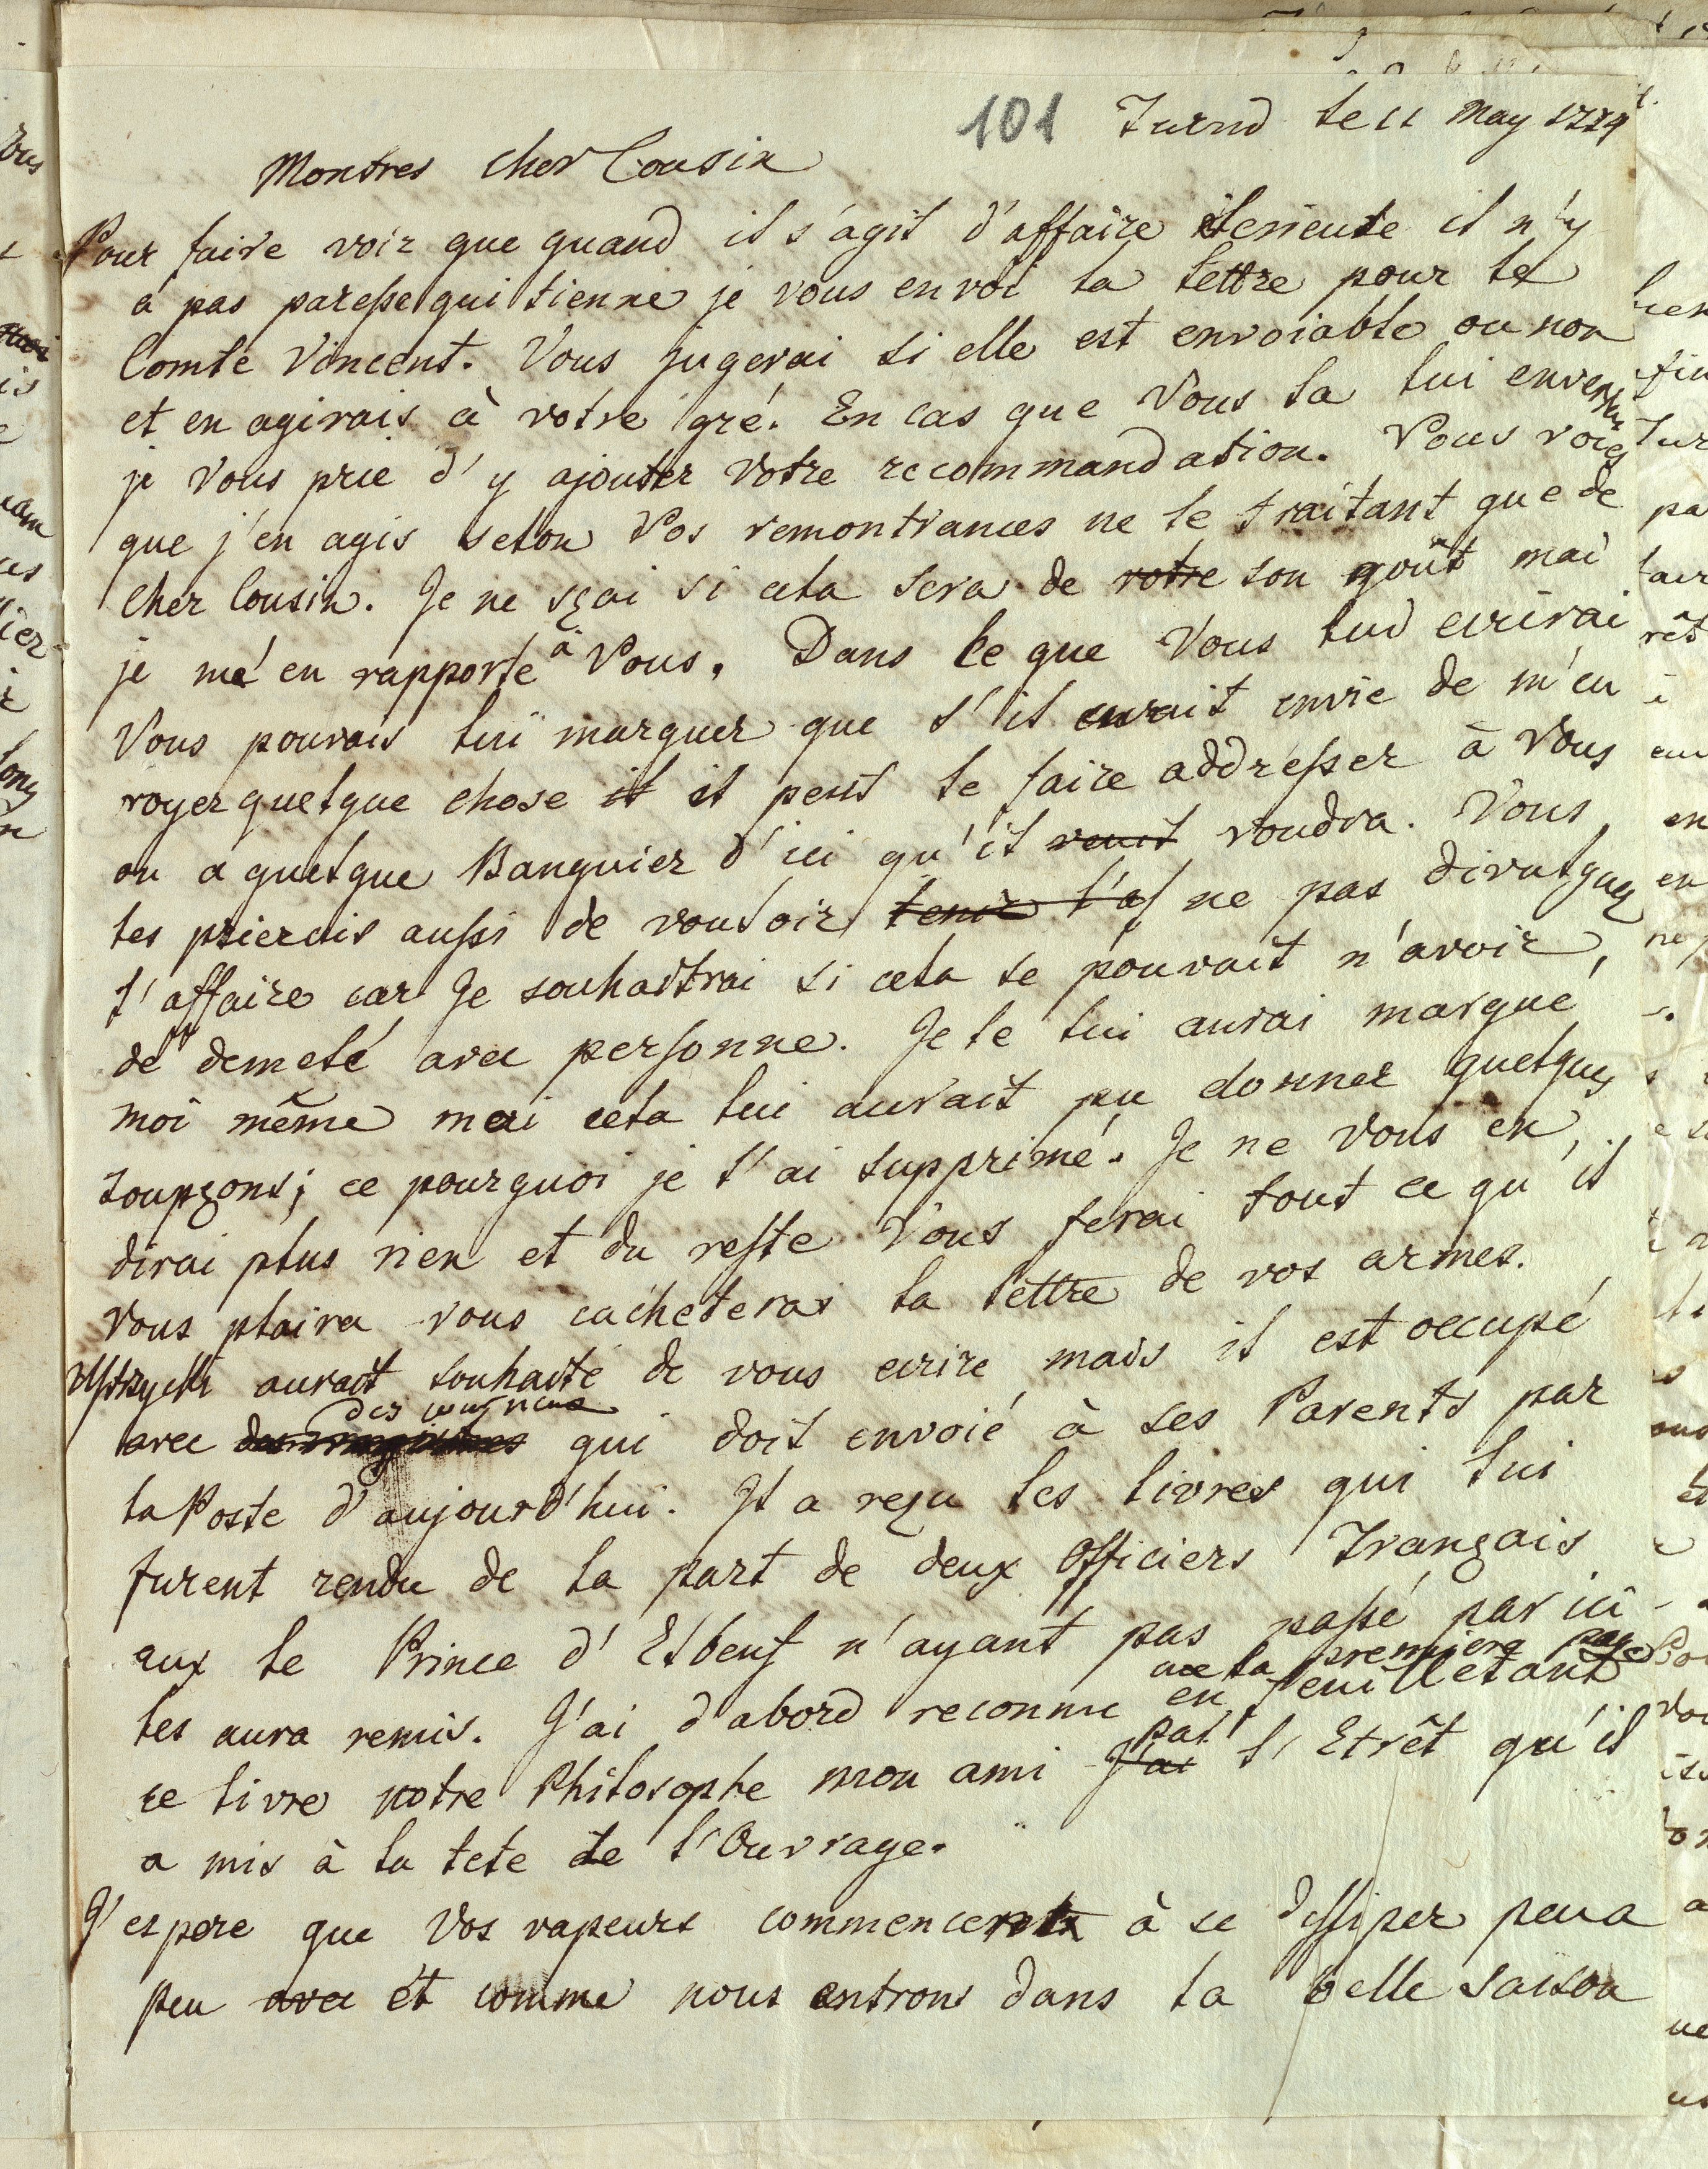 101 Turnd le 11 May 1779
Montres cher Cousin
Pour faire voir que quand il s'agit d'affaire serieuse il n'y
a pas paresse qui tienne je vous envoi la lettre pour le
Comte Vincent. Vous jugerai si elle est envoiable ou non
et en agirais à vôtre gré. En cas que Vous la lui
je Vous prie d'y ajouter Votre recommandation. Vous voiés
que j'en agis selon Vos remontrances ne le traitant que de
cher Cousin. Je ne sçai si cela sera de votre son goût mai
je m'en rapporte à Vous. Dans le que Vous lui ecrirai
Vous pourais lui marquer que s'il avait envie de m'en
voyer quelque chose il il peut le faire addresser à Vous
ou a quelque Banquier d'ici qu'il veut voudra. Vous
les prierais aussi de vouloir tenir l'af ne pas divulguer
l'affaire car Je souhaitrai si cela se pouvait n'avoir
de demelé avec personne. Je le lui aurai marqué
moi même mai cela lui aurait pu donner quelques
soupçons; ce pourquoi je l'ai supprimé. Je ne Vous en
dirai plus rien et du reste Vous ferai tout ce qu'il
vous plaira vous cacheteras la lettre de vos armes.
aurait souhaité de vous ecrire mais il est occupé
avec des qui doit envoié à ses Parents par
la Poste d'aujourd'hui. Il a reçu les livres qui lui
furent rendu de la part de deux Officiers Français
aux le Prince d'Elbeuf n'ayant pas passé par ici
les aura remis. J'ai d'abord reconnu en feuilletant la premiere page
ce livre notre Philosophe mon ami J'ai par l'Etrêt qu'il
a mis à la tete de l'Ouvrage.
J'espere que Vos vapeurs commencent à se dissiper peu a
peu avec et comme nous entrons dans la belle saison